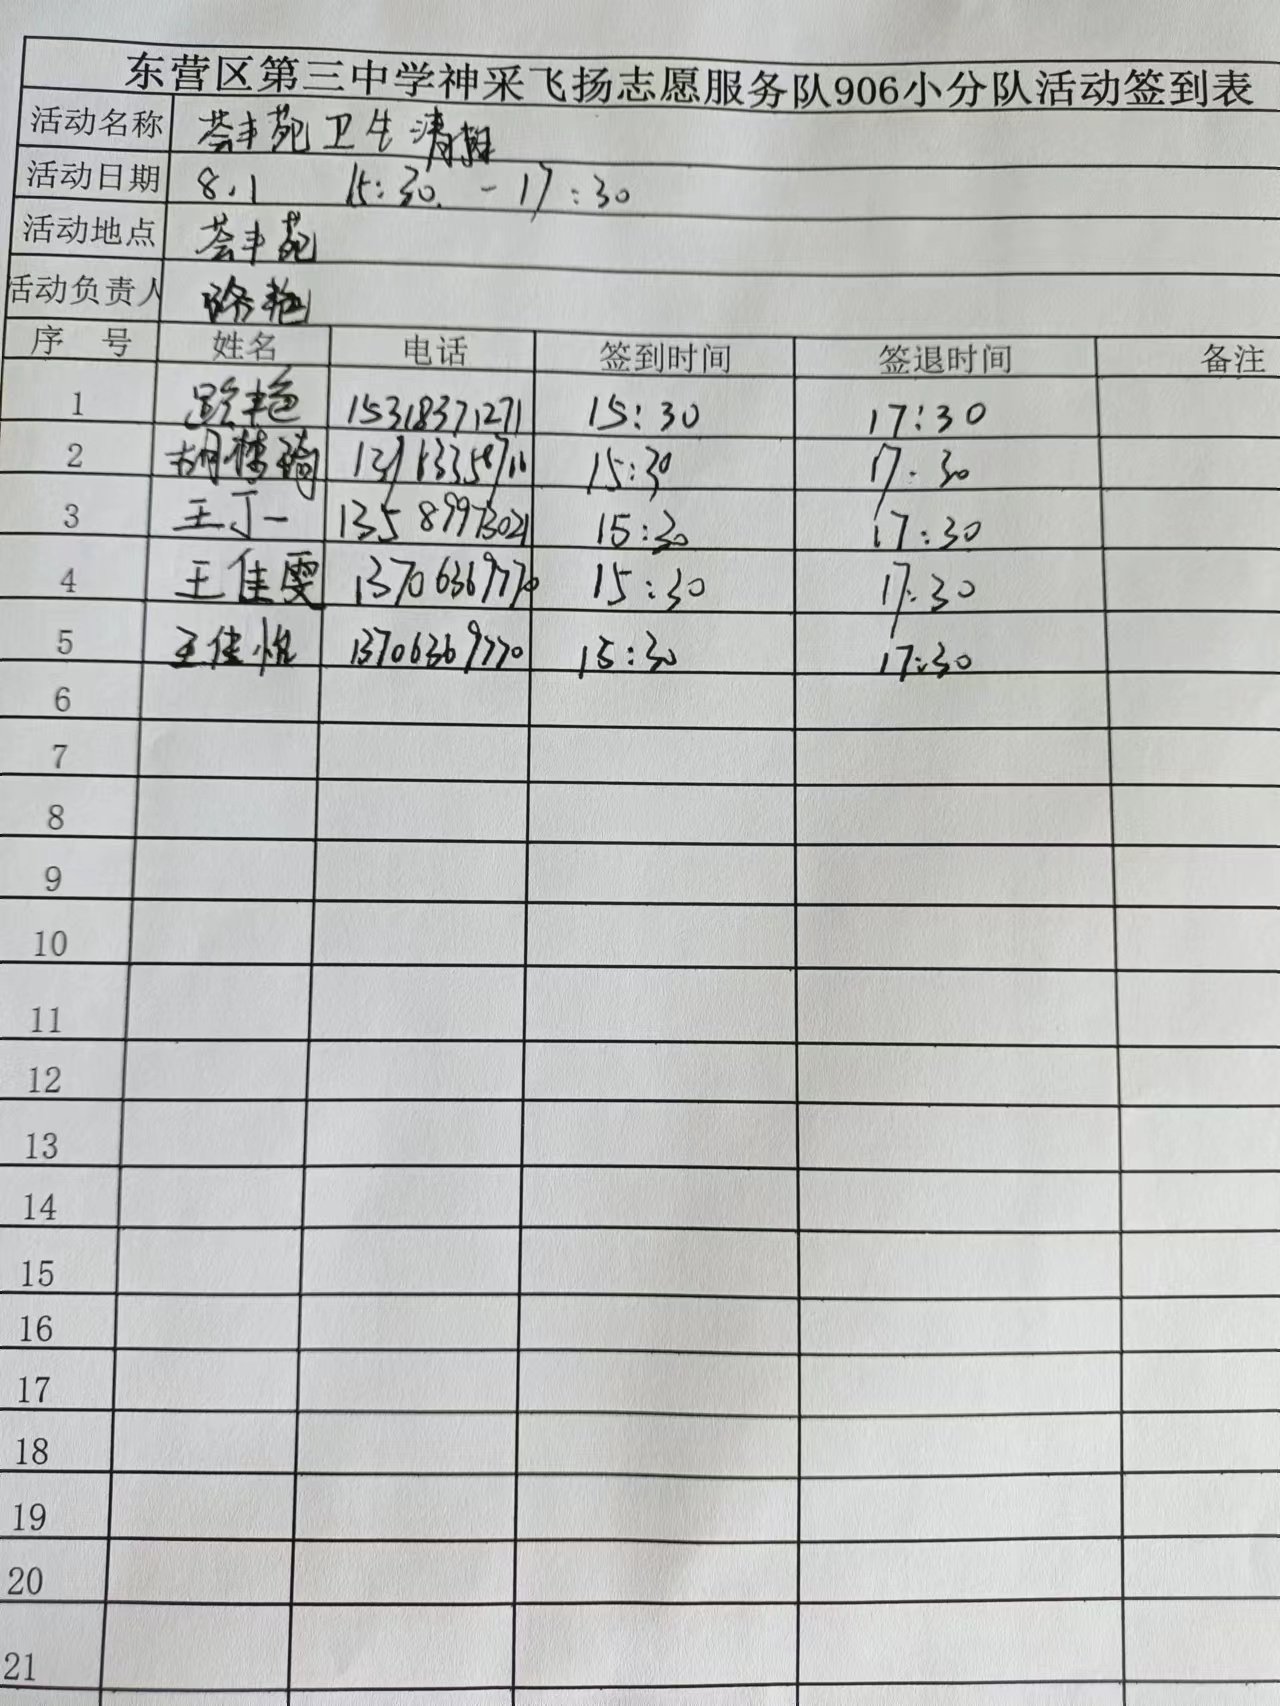 东营区第三中学神采飞扬志愿服务队906小分队活动签到表
活动名称 荟丰苑卫生清理
活动日期 8.1 15:30 - 17:30
活动地点 荟丰苑
活动负责人 路艳
序号 姓名 电话 签到时间 签退时间 备注
1 路艳 15318371271 15:30 17:30
2 胡 15:30 17:30
3 王丁一 13589973021 15:30 17:30
4 王佳雯 13706369770 15:30 17:30
5 王佳悦 13706369770 15:30 17:30
6
7
8
9
10
11
12
13
14
15
16
17
18
19
20
21